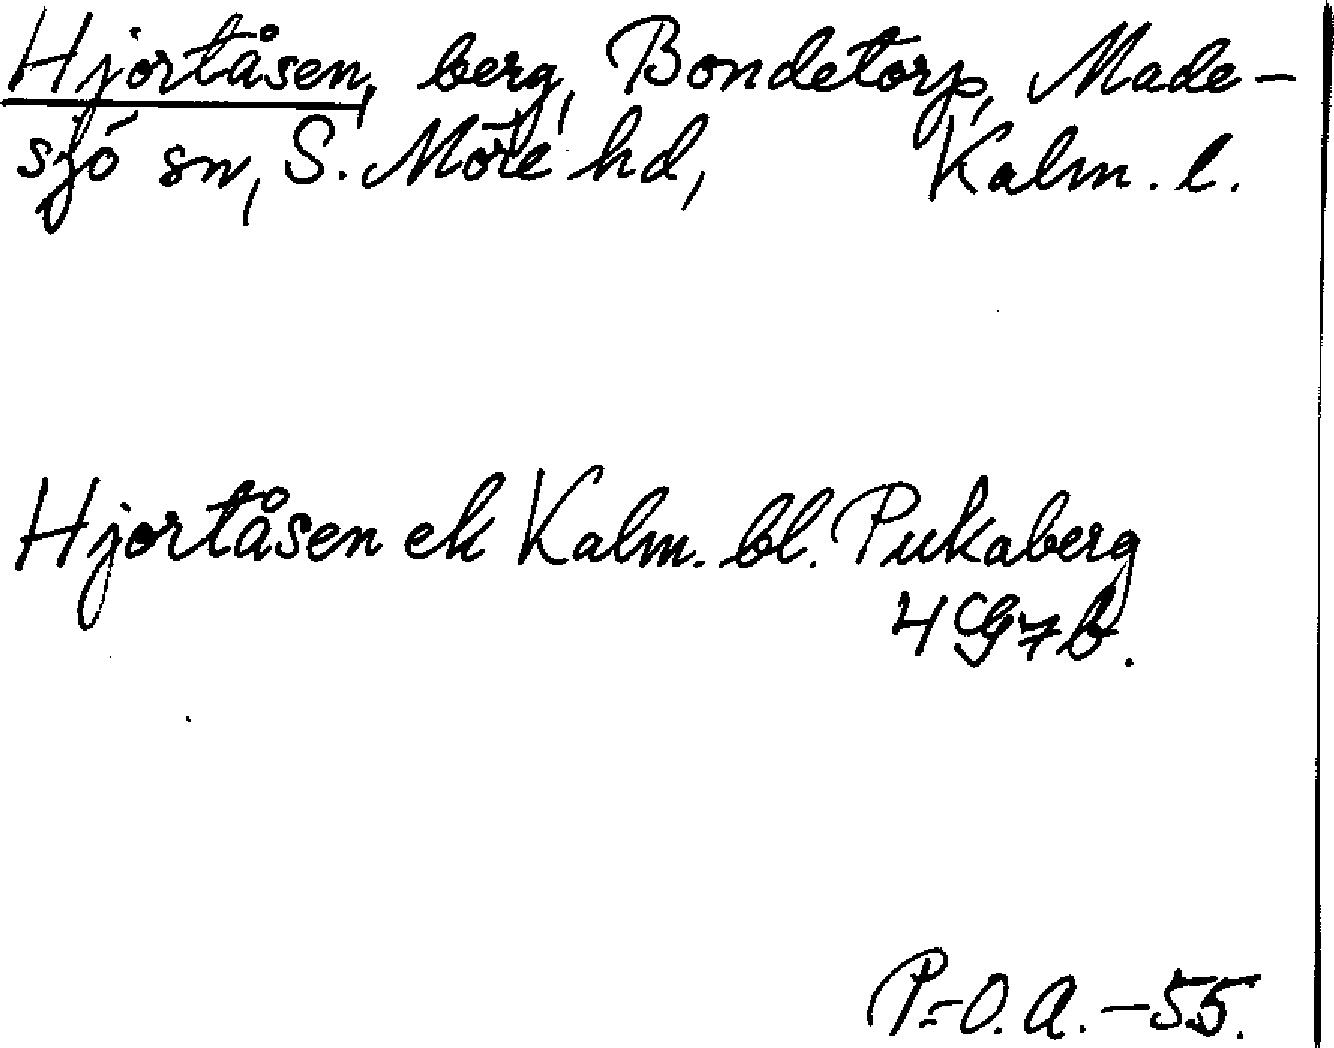 Hjortåsen, berg, Bondetorp, Made-
sjö sn, S. Möre hd, Kalm. l.
Hjortåsen ek Kalm. bl. Pukaberg
4 G 7 b.
P.-O. A. -55.